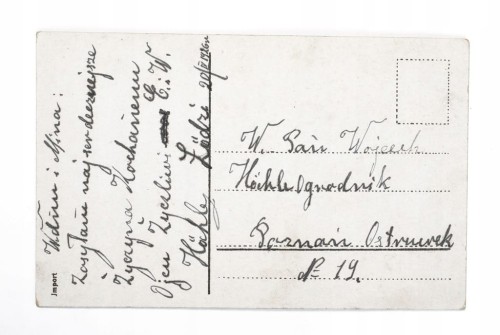 W dniu i Mina:
Zasyłam najserdeczniejsze
Życzynia Kochanemu
Ojcu Życzliwi E. i W.
Hähle Łódź 20/II 1926r
W. Pan Wojcech
Hähle Ogrodnik
Poznań Ostruwek
№ 19.
Import